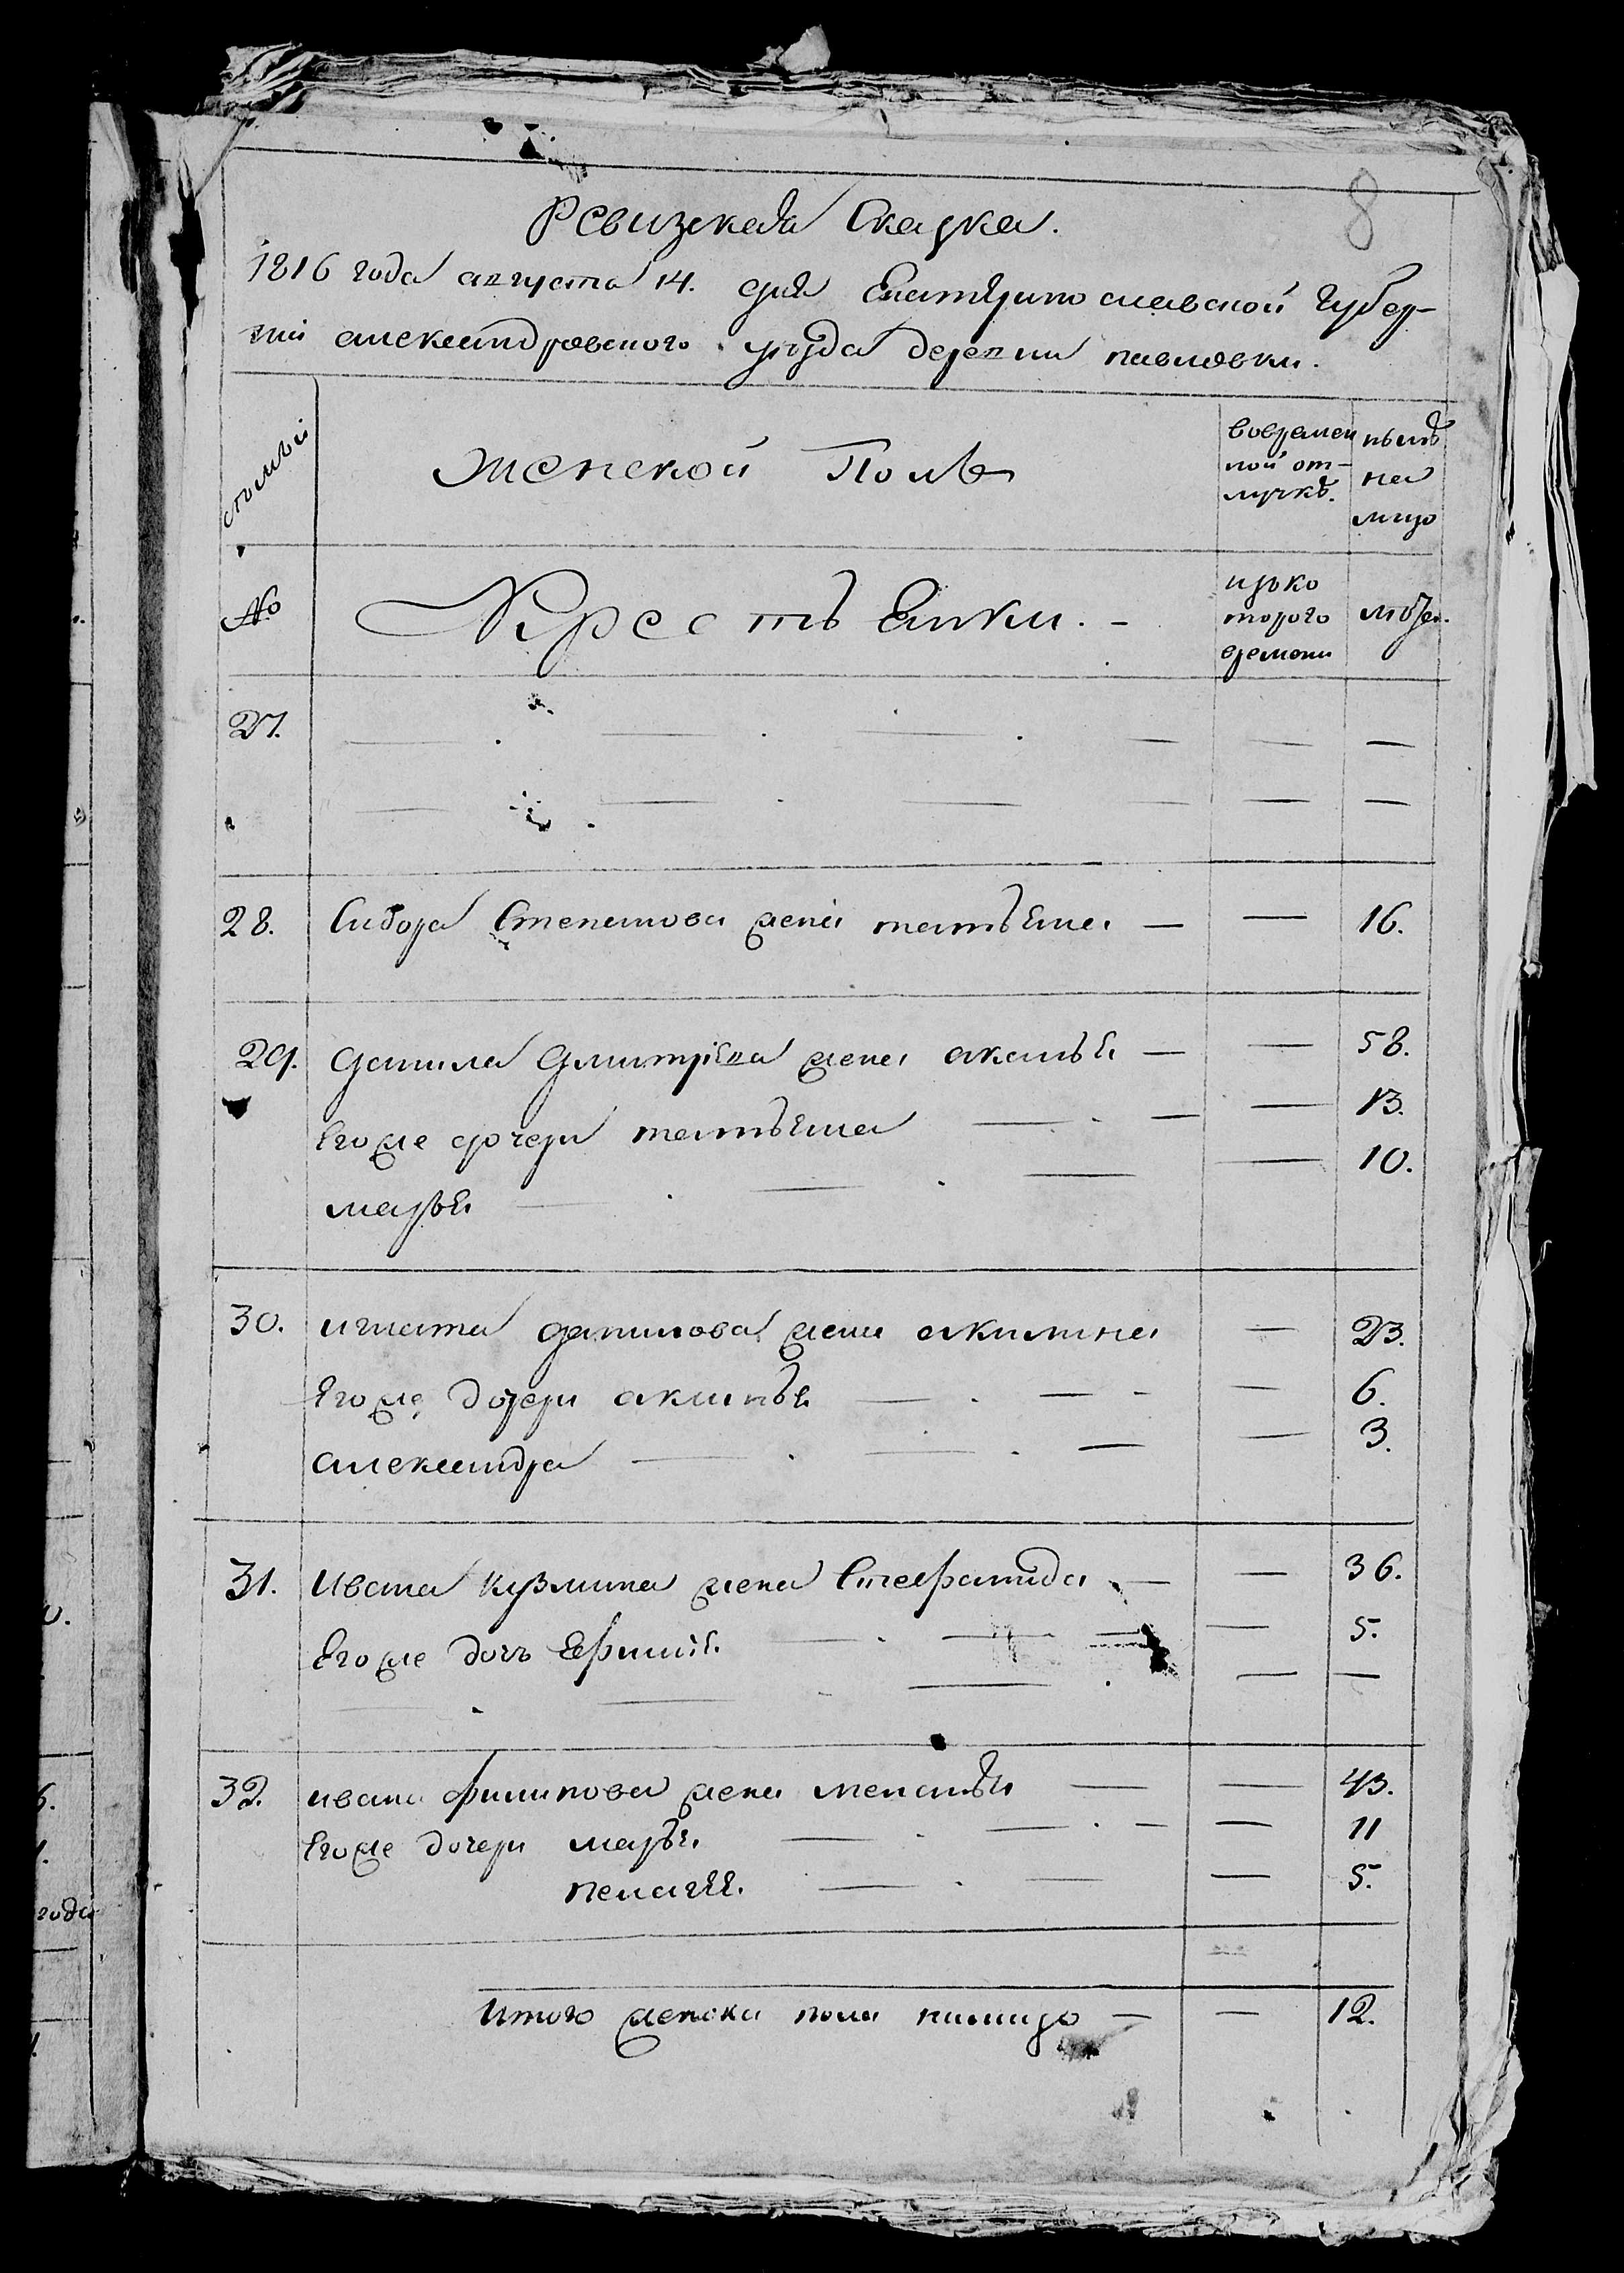 8
Ревизская Сказка.
1816 года августа 14. дня Екатерино славской Губер-
нии александровского уезда деревни павловки.
семьи
Женской Полъ
вовремен
ной от-
лучкѣ.
нынѣ
на
лицо
№
Крестьянки. -
изъко
торого
времени
лѣта.
27. — — — — — —
— — — — — —
28. Сидора Степанова жена татьяна — — 16.
29. Данила Дмитріева жена аксинья — — 58.
Егоже дочери татьяна — — — 13.
марья — — — — 10.
30. игната данилова жена акилина — 23.
Егоже дочери аксинья — — - — 6.
александра — — — — 3.
31. Ивана кузмина жена Стефанида — — 36.
Егоже дочь Ефимія — — — — 5.
— — — — —
32. ивана филипова жена меланья — — 43.
Егоже дочери марья — — - — 11
пелагея. — — — 5.
Итого женска пола налицо — — 12.
года